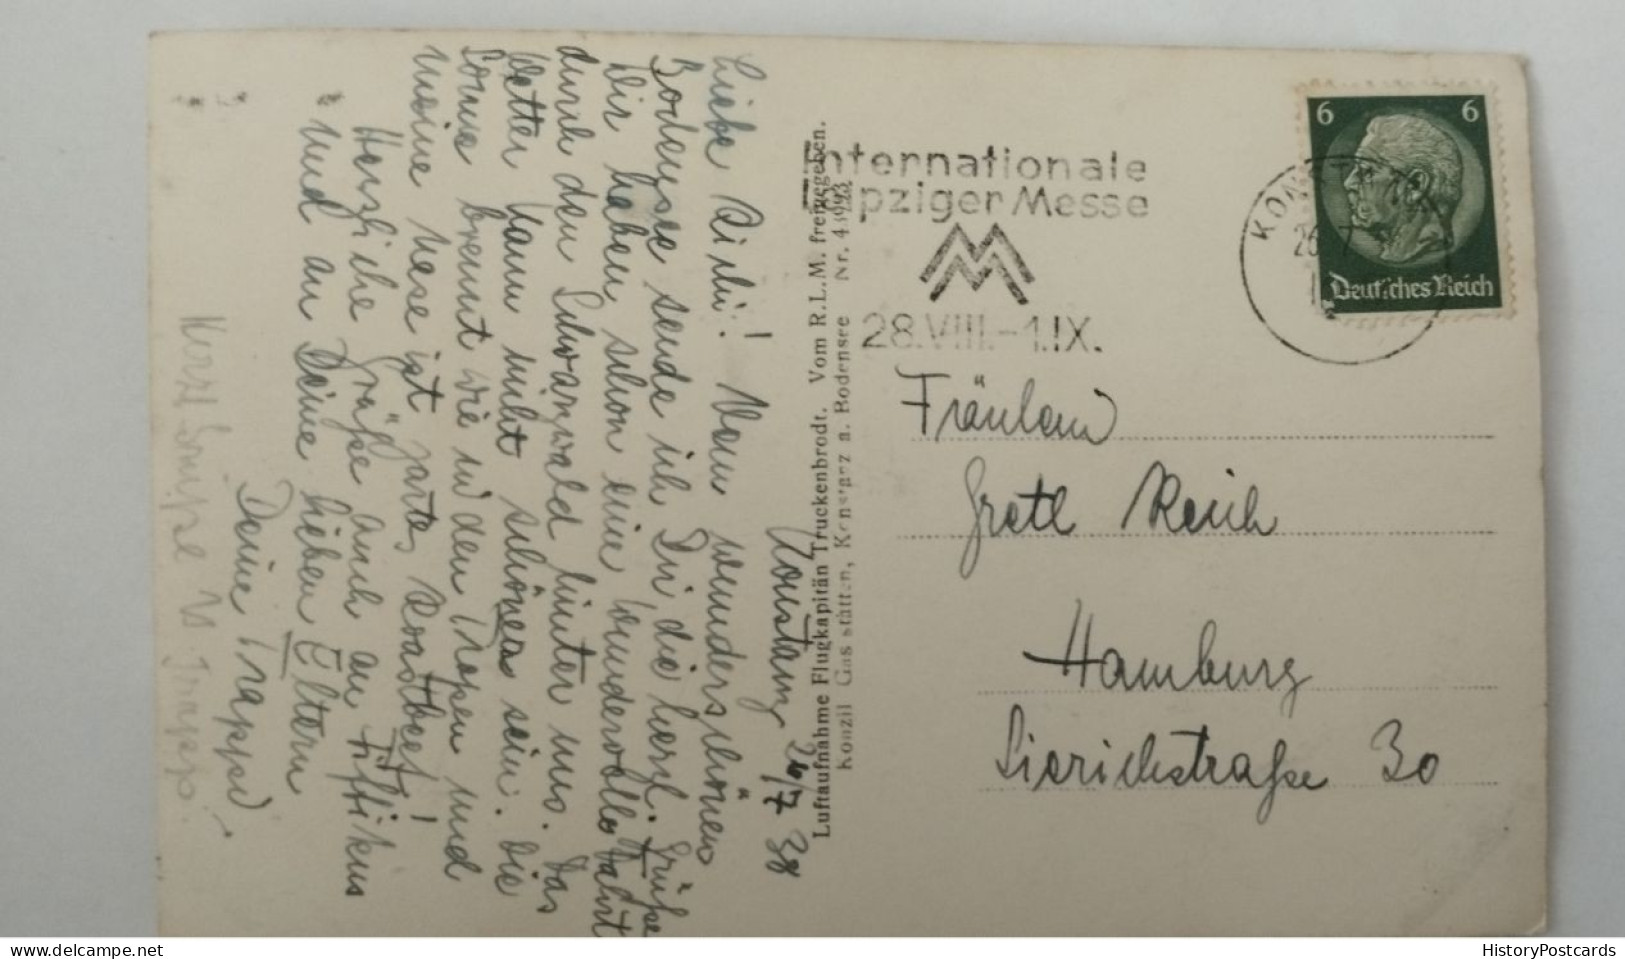 Konstanz 26/7 38
Liebe Risi! Vom wunderschönen
Bodensee sende ich Dir die herzl. Grüße
Wir haben schon eine wundervolle Fahrt
durch den Schwarzwald hinter uns. Das
Wetter kann nicht schöner sein. Die
Sonne brennt wie in den Tropen und
meine Nase ist zartes Roastbeef!
Herzliche Grüße auch an Fiffikus
und an Deine lieben Eltern
Deine Trappi
Herzl. Grüße
Luftaufnahme Flugkapitän Truckenbrodt. Vom R.L.M. freigegeben.
Konzil Gaststätten, Konstanz a. Bodensee Nr. 43993
Internationale
Leipziger Messe
28.VIII.-1.IX.
KONSTANZ
26.7
6 6
Deutsches Reich
Fräulein
Gretl Reich
Hamburg
Sierichstraße 30
delcampe.net
HistoryPostcards